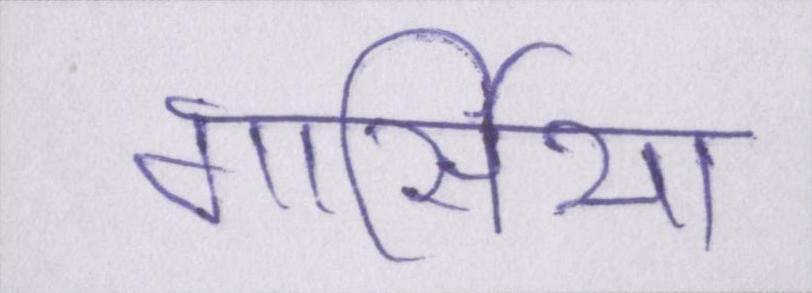 गार्सिया